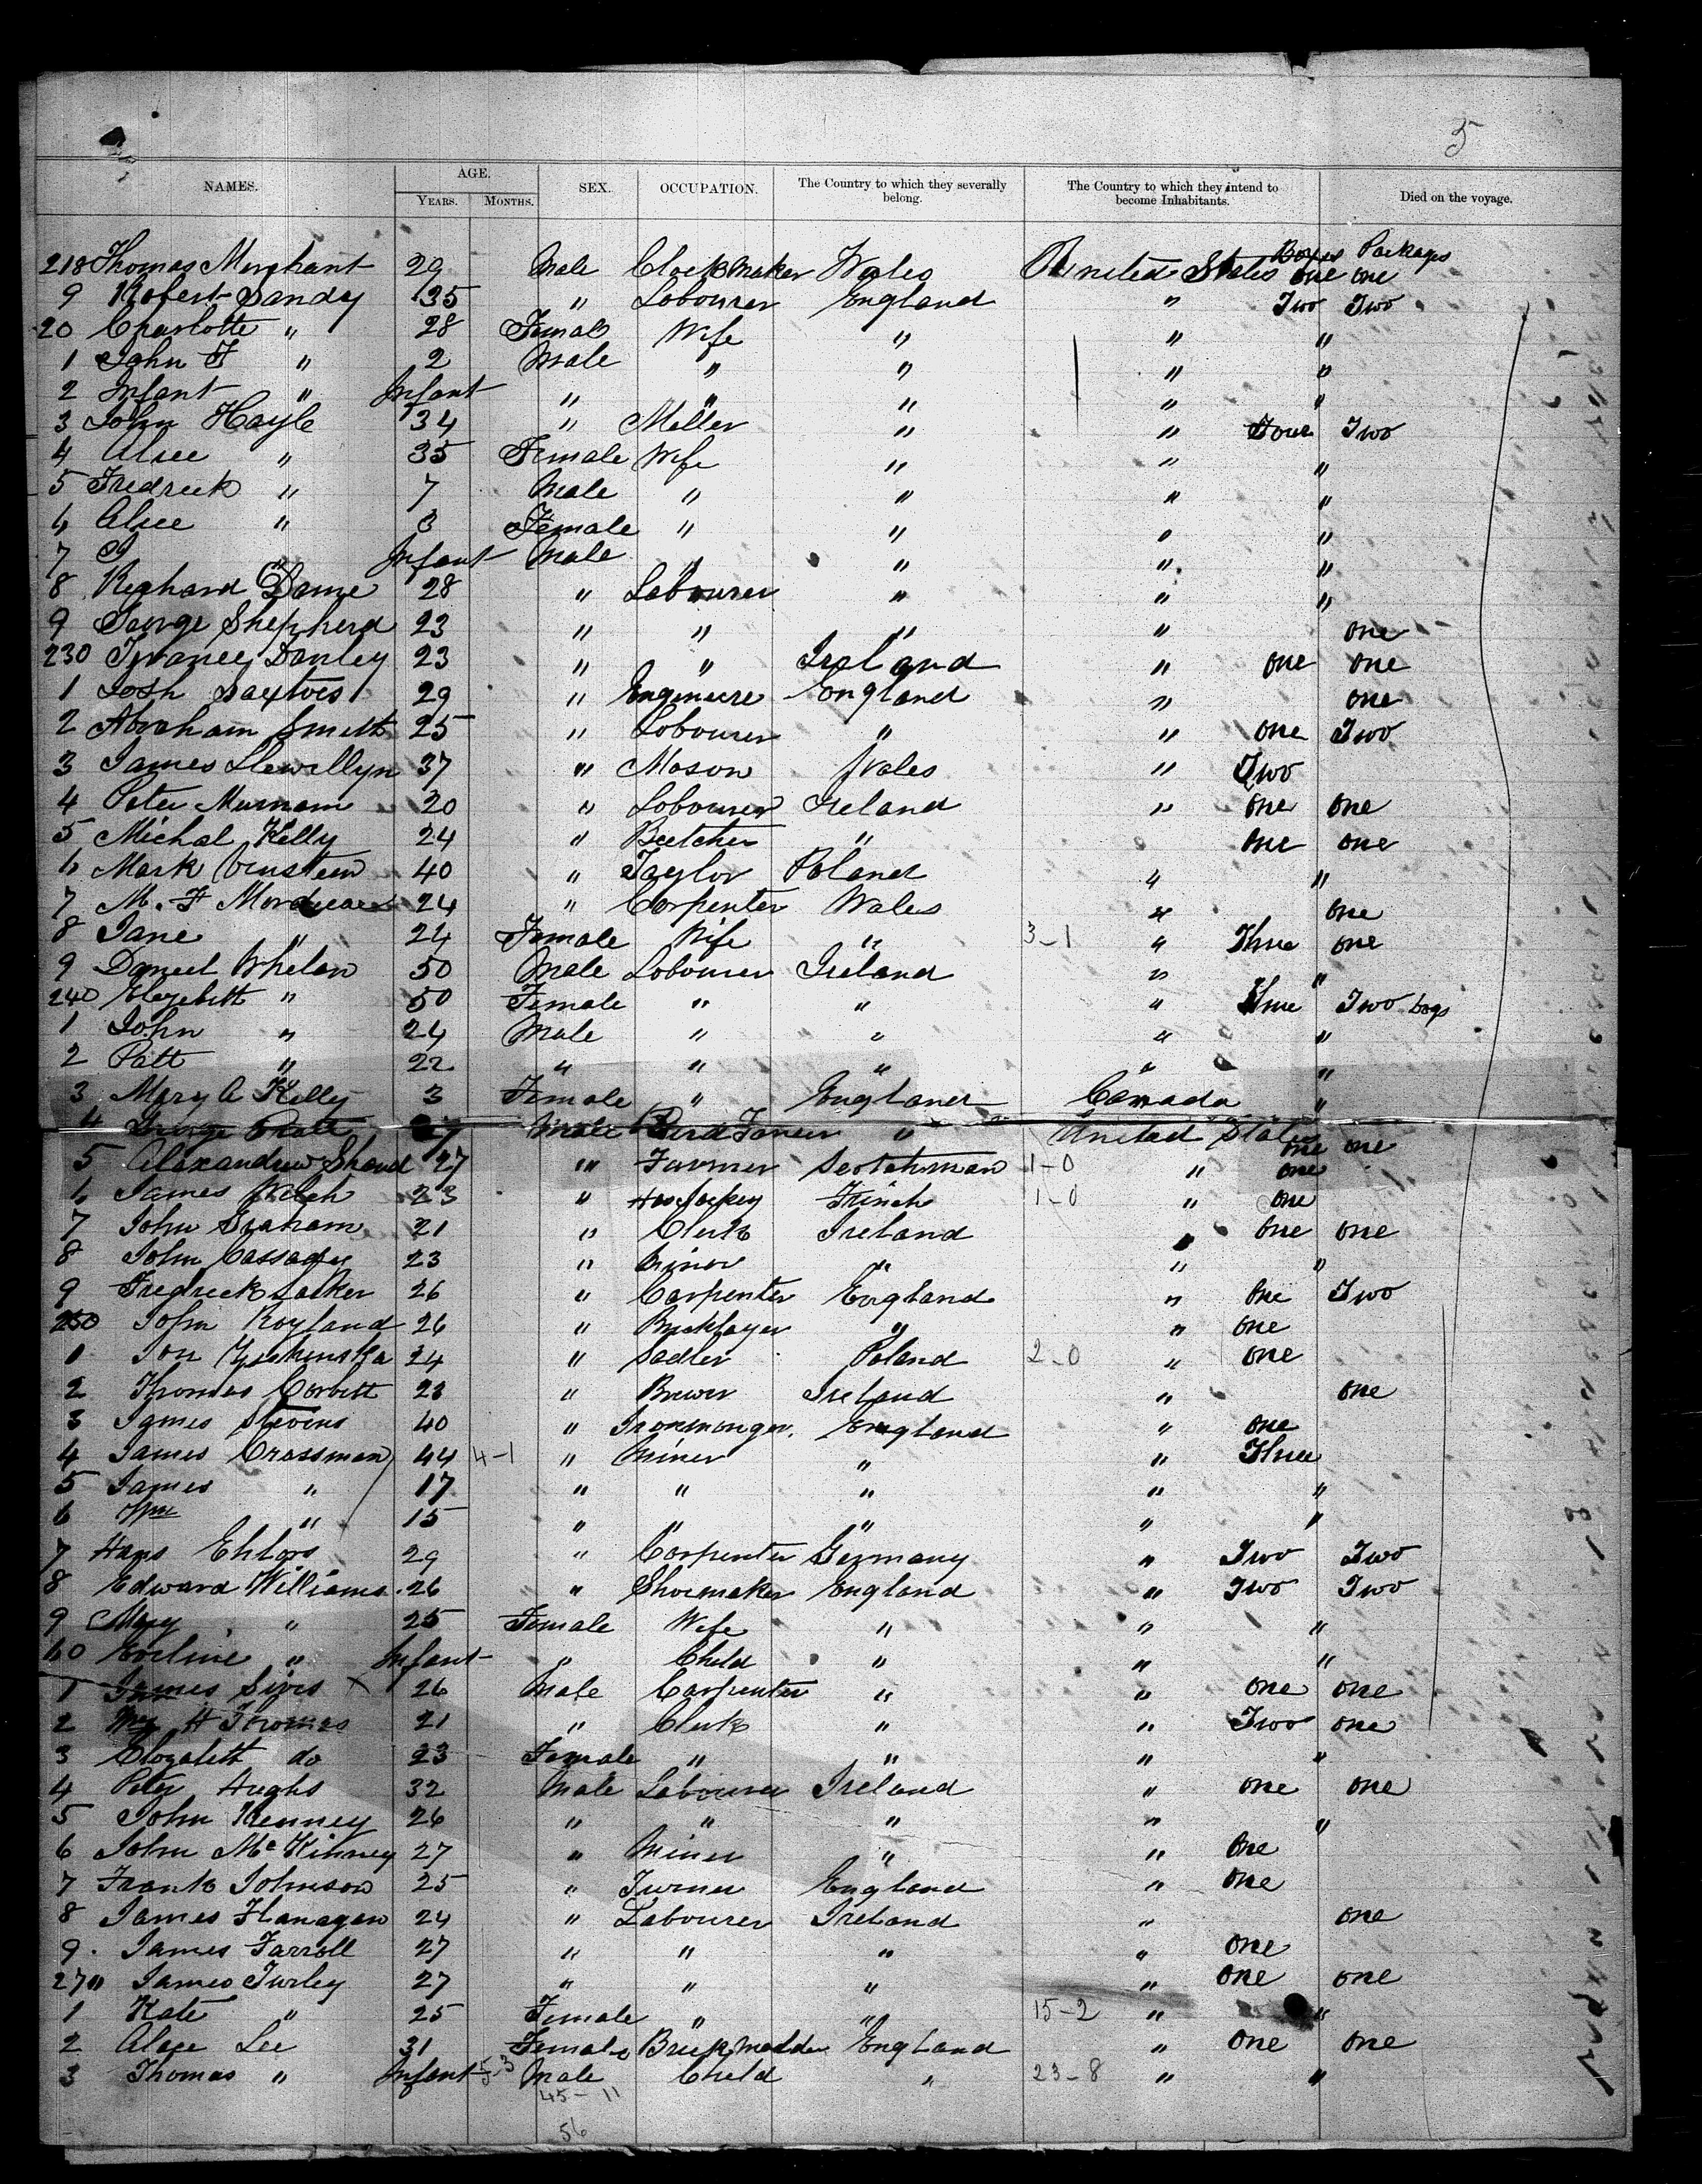 5
NAMES. AGE. YEARS. MONTHS. SEX. OCCUPATION. The Country to which they severally belong. The Country to which they intend to become Inhabitants. Died on the voyage.
Boxes Packages
218 Thomas Merchant 29 Male Clockmaker Wales United States one one
9 Robert Sandy 35 " Labourer England " Two Two
20 Charlotte " 28 Female Wife " " "
1 John F " 2 Male " " " "
2 Infant " Infant " " " " "
3 John Hayle 34 " Miller " " Four Two
4 Alice " 35 Female Wife " " "
5 Fredrick " 7 Male " " " "
6 Alice " 3 Female " " " "
7 Infant Male " " " "
8 Richard Dame 28 " Labourer " " "
9 George Shepherd 23 " " " " one
230 Danley 23 " " Ireland " one one
1 Josh 29 " Engineere England " one
2 Abraham Smith 25 " Labourer " " one Two
3 James Llewellyn 37 " Mason Wales " Two
4 Peter Murnam 20 " Labourer Ireland " one one
5 Michal Kelly 24 " Butcher " one one
6 Mark 40 " Taylor Poland " "
7 M. F 24 " Carpenter Wales " one
8 Jane " 24 Female Wife " 3-1 " Three one
9 Daniel Whelan 50 Male Labourer Ireland " "
240 Elezebeth " 50 Female " " " Three Two bags
1 John " 24 Male " " " "
2 Patt " 22 " " " " "
3 Mary A Kelly 3 Female " England Canada "
4 George Male " United States one one
5 Alaxandrew Shand 27 " Farmer Scotchman 1-0 " one
6 James Welch 23 " Jockey French 1-0 " one
7 John Graham 21 " Clerk Ireland " one one
8 John Cassady 23 " Minor " " "
9 Fredrick 26 " Carpenter England " One Two
250 John Royland 26 " Bricklayer " " one
1 Jon 24 " Sadler Poland 2-0 " one
2 Thomas Corbett 23 " Brewer Ireland " one
3 James Stevens 40 " Ironmonger. England " one
4 James Crassman 44 4-1 " Miner " " Three
5 James " 17 " " " " "
6 Wm " 15 " " " " "
7 Hans Ehlors 29 " Carpenter Germany " Two Two
8 Edward Williams. 26 " Shoemaker England " Two Two
9 Mary " 25 Female Wife " " "
60 Eveline " Infant " Child " " "
1 James X 26 Male Carpenter " " one one
2 Wm H Thomas 21 " Clerk " " Two one
3 Elozabeth do 23 Female " " " "
4 Peter Hughs 32 Male Labourer Ireland " one one
5 John Kenney 26 " " " " "
6 John McKinney 27 " Miner " " One
7 Frank Johnson 25 " Turner England " One
8 James Flanagan 24 " Labourer Ireland " one
9. James Farroll 27 " " " " One
27" James Turley 27 " " " " One one
1 Kate " 25 Female " " 15-2 " "
2 Alice Lee 31 Female England " One one
3 Thomas " Infant 5-3 Male Child " 23-8 " "
45-11
56